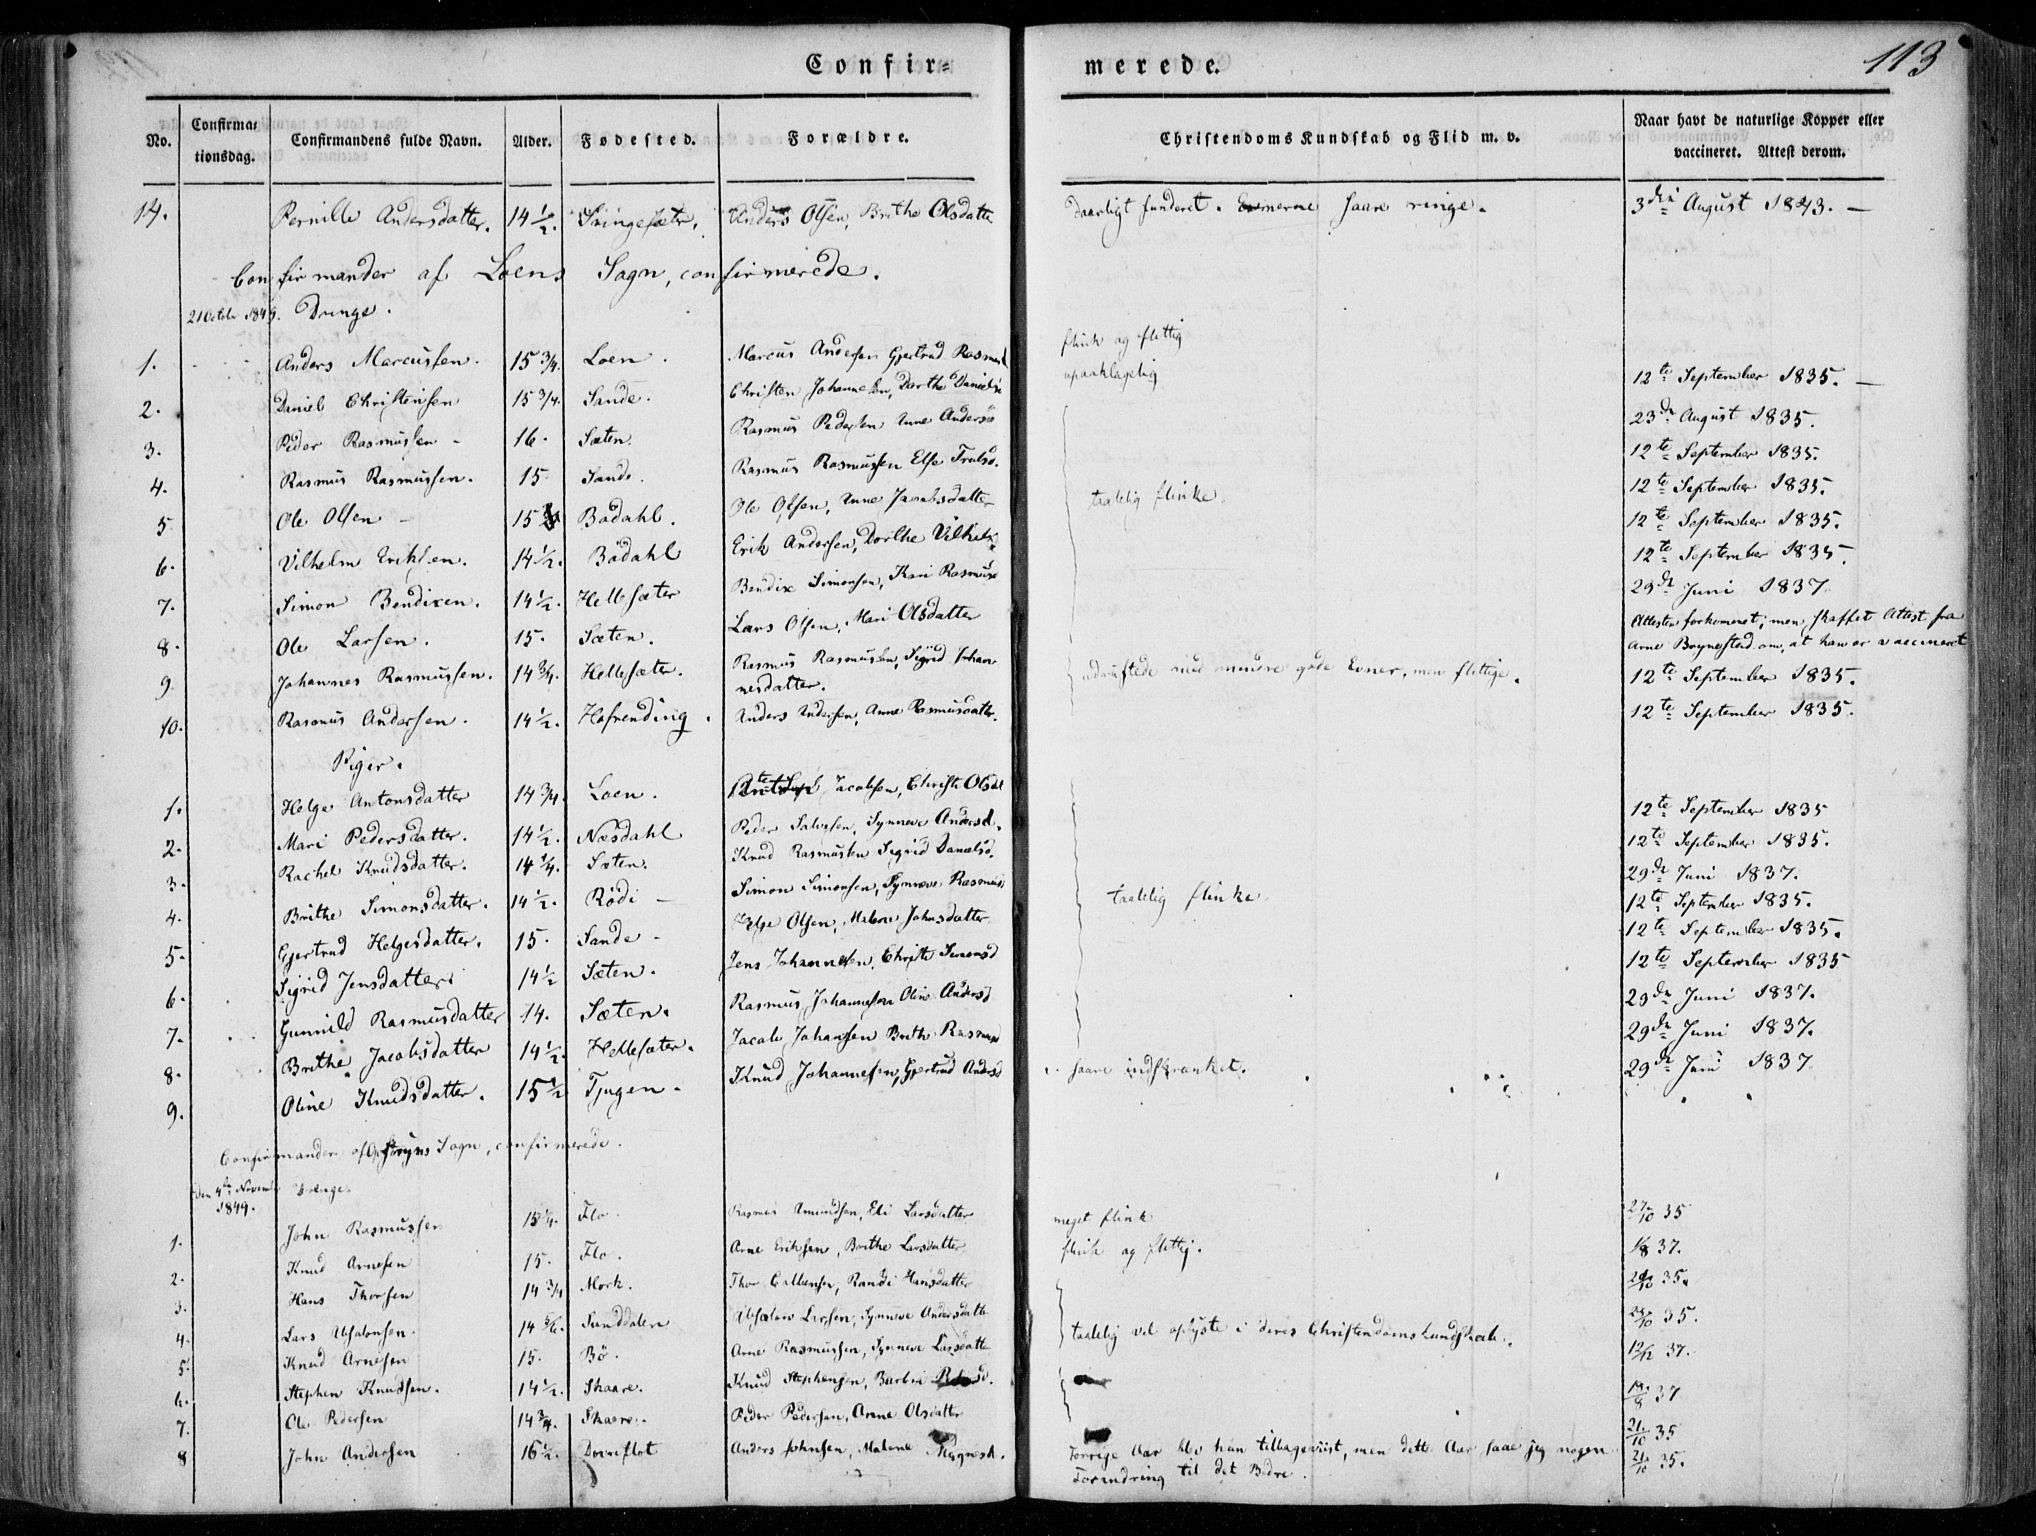 Confir=
merede.
113
No. Confirmationsdag. Confirmandens fulde Navn. Alder. Fødested. Forældre. Christendoms Kundskab og Flid m. v. Naar havt de naturlige Kopper eller vaccineret. Attest derom.
14. Pernille Andersdatter. 14½. Anders Olsen, Brithe Olsdatter daarligt funderet. Evnerne saare ringe. 3die August 1843. —
Confirmander af Loens Sogn, confirmerede.
21 October 1849. Drenge.
1. Anders Marcussen. 15 3/4. Loen. Marcus Andersen Gjertrud Rasmusd flink og flittig 12te September 1835. —
2. Daniel Christensen 15 3/4. Sande. Christen Johannesen, Dorthe Danielsd upaaklagelig 23de August 1835.
3. Peder Rasmussen - 16. Sæten. Rasmus Pedersen Anne Andersd 12te September 1835.
4. Rasmus Rasmussen. 15. Sande. Rasmus Rasmussen Else Trulsd. 12te September 1835.
5. Ole Olsen - 15 Bødahl. Ole Olsen, Anne Jacobsdatter taalelig flinke. 12te September 1835.
6. Vilhelm Eriksen. 14½. Bødahl Erik Andersen, Dorthe Vilhelmsd 12te September 1835.
7. Simon Bendixen. 14½. Hellesæter Bendix Simonsen, Kari Rasmusd 29de Juni 1837.
8. Ole Larsen. 15. Sæten. Lars Olsen, Mari Olsdatter Attesten forkommet; men skaffet Attest fra Arne Bøynestad om, at han er vaccineret
9. Johannes Rasmussen. 14 3/4. Hellesæter. Rasmus Rasmussen, Sigrid Johannesdatter. udrustede med mindre gode Evner, men flittige. 12te September 1835.
10. Rasmus Andersen. 14½. Hafrending. Anders Andersen, Anne Rasmusdatter. 12te September 1835.
Piger.
1. Helge Antonsdatter 14 3/4. Loen. Jacobsen, Christi Olsd 12te September 1835
2. Mari Pedersdatter. 14½. Næsdahl Peder Salvesen, Synneve Andersd. 12te September 1835.
3. Rachel Knudsdatter. 14 1/4. Sæten. Knud Rasmussen Sigrid Danielsd. 29de Juni 1837.
4. Brithe Simonsdatter. 14½. Rødi - Simon Simonsen, Synneve Rasmusd taalelig flinke. 12te September 1835.
5. Gjertrud Helgesdatter. 15. Sande - Helge Olsen, Malene Johnsdatter 12te September 1835.
6. Sigrid Jensdatter. 14½ Sæten. Jens Johannesen, Christi Simonsd 12te September 1835
7. Gunnild Rasmusdatter 14. Sæten. Rasmus Johannesen Oline Andersd 29de Juni 1837.
8. Brithe Jacobsdatter 14½. Hellesæter. Jacob Johansen Brithe Rasmusd 29de Juni 1837.
9. Oline Knudsdatter. 15½ Tjugen. Knud Johannesen, Gjertrud Andersd saare indskrænket. 29de Juni 1837
Confirmander af Opstryns Sogn, confirmerede.
den 4de Novemb 1849. Drenge.
1. John Rasmussen 15 1/4. Flo. Rasmus Amundsen, Eli Larsdatter meget flink 27/10 35
2. Knud Arnesen 15. Flo. Arne Eriksen, Brithe Larsdatter flink og flittig. 1/8 37.
3. Hans Thorsen 14 3/4 Mork. Thor Randi Hansdatter 35.
4. Lars Absalonsen. 14 Sunddalen Absalon Larsen, Synneve Andersdatter taalelig vel oplyste i deres Christendomskundskab. 35.
5. Knud Arnesen 15. Bø. Arne Rasmussen, Synneve Larsdatter 12/12 37.
6. Stephen Knudsen. 14½. Skaare. Knud Stephensen, 37
7. Ole Pedersen 14 3/4. Skaare. Peder Pedersen, Anne Olsdatter 21/10 35
8 John Andersen 16½. Anders Johnsen, Malene Magnesd. Forrige Aar blev han tilbageviist, men dette Aar saae jeg nogen Forandring til det Bedre. 21/10 35.